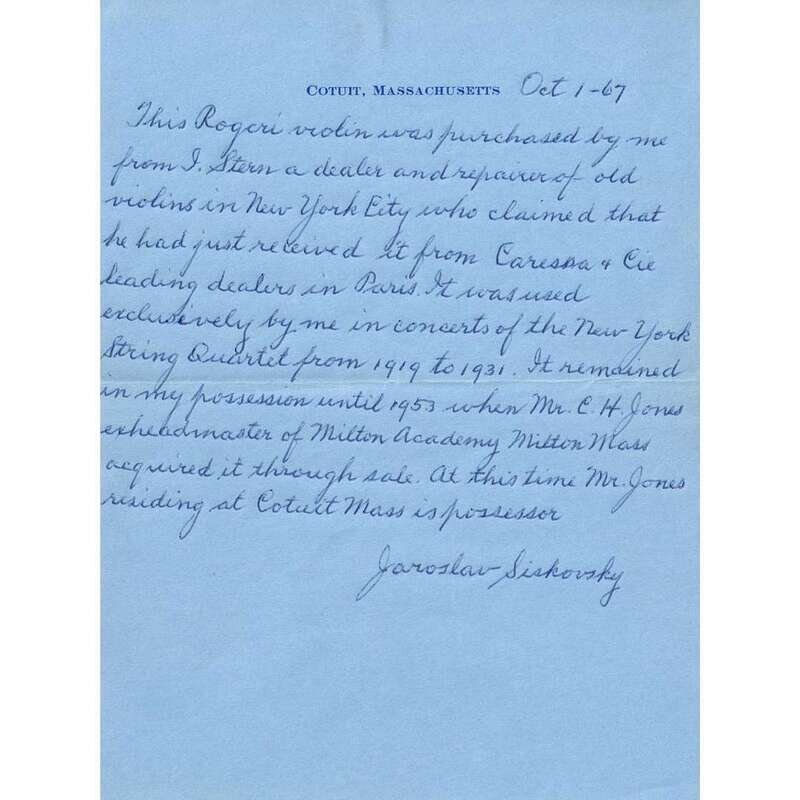 COTUIT, MASSACHUSETTS Oct 1-67
This Rogeri violin was purchased by me
from I. Stern a dealer and repairer of old
violins in New York City who claimed that
he had just received it from Caressa & Cie
leading dealers in Paris. It was used
exclusively by me in concerts of the New York
String Quartet from 1919 to 1931. It remained
in my possession until 1953 when Mr. C. H. Jones
exheadmaster of Milton Academy Milton Mass
acquired it through sale. At this time Mr. Jones
residing at Cotuit Mass is possessor
Jaroslav Siskovsky